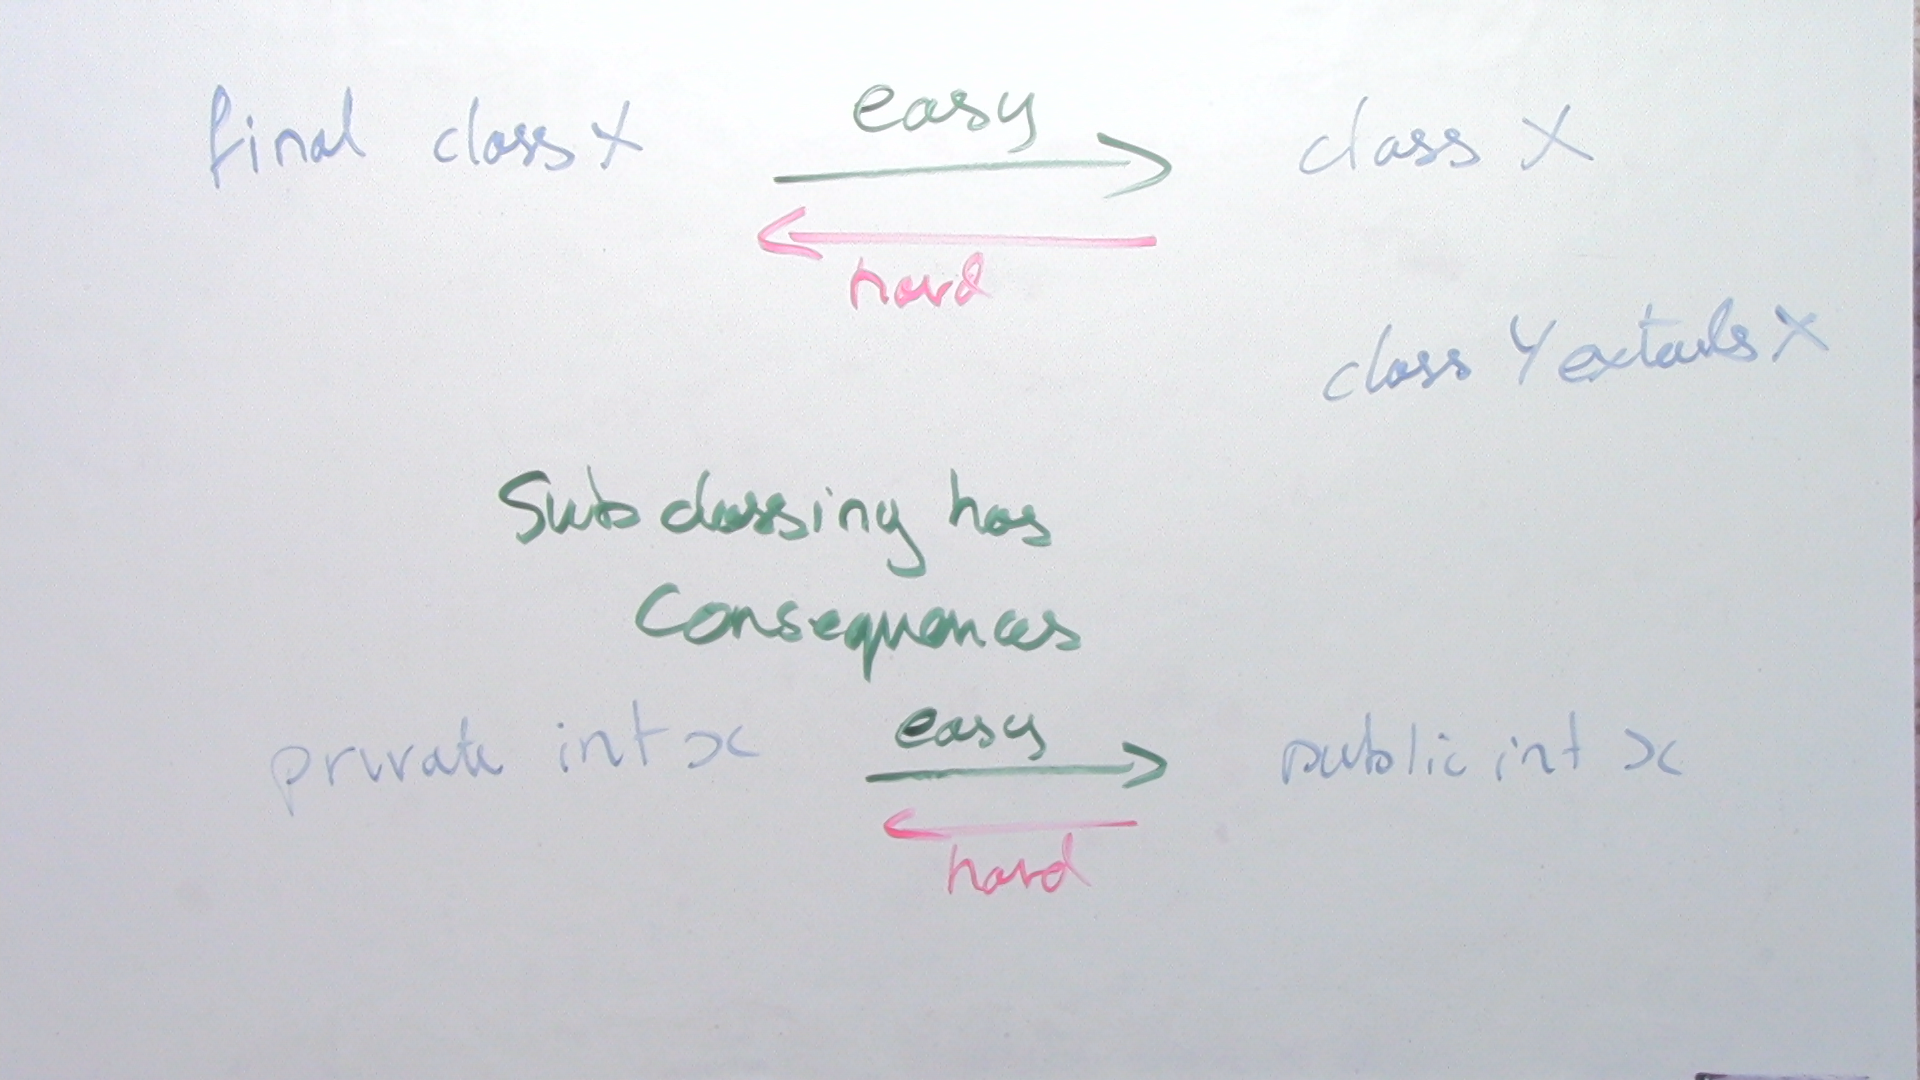 final class X easy class X
hard
class Y extends X
Subclassing has
Consequences
private int x easy public int x
hard